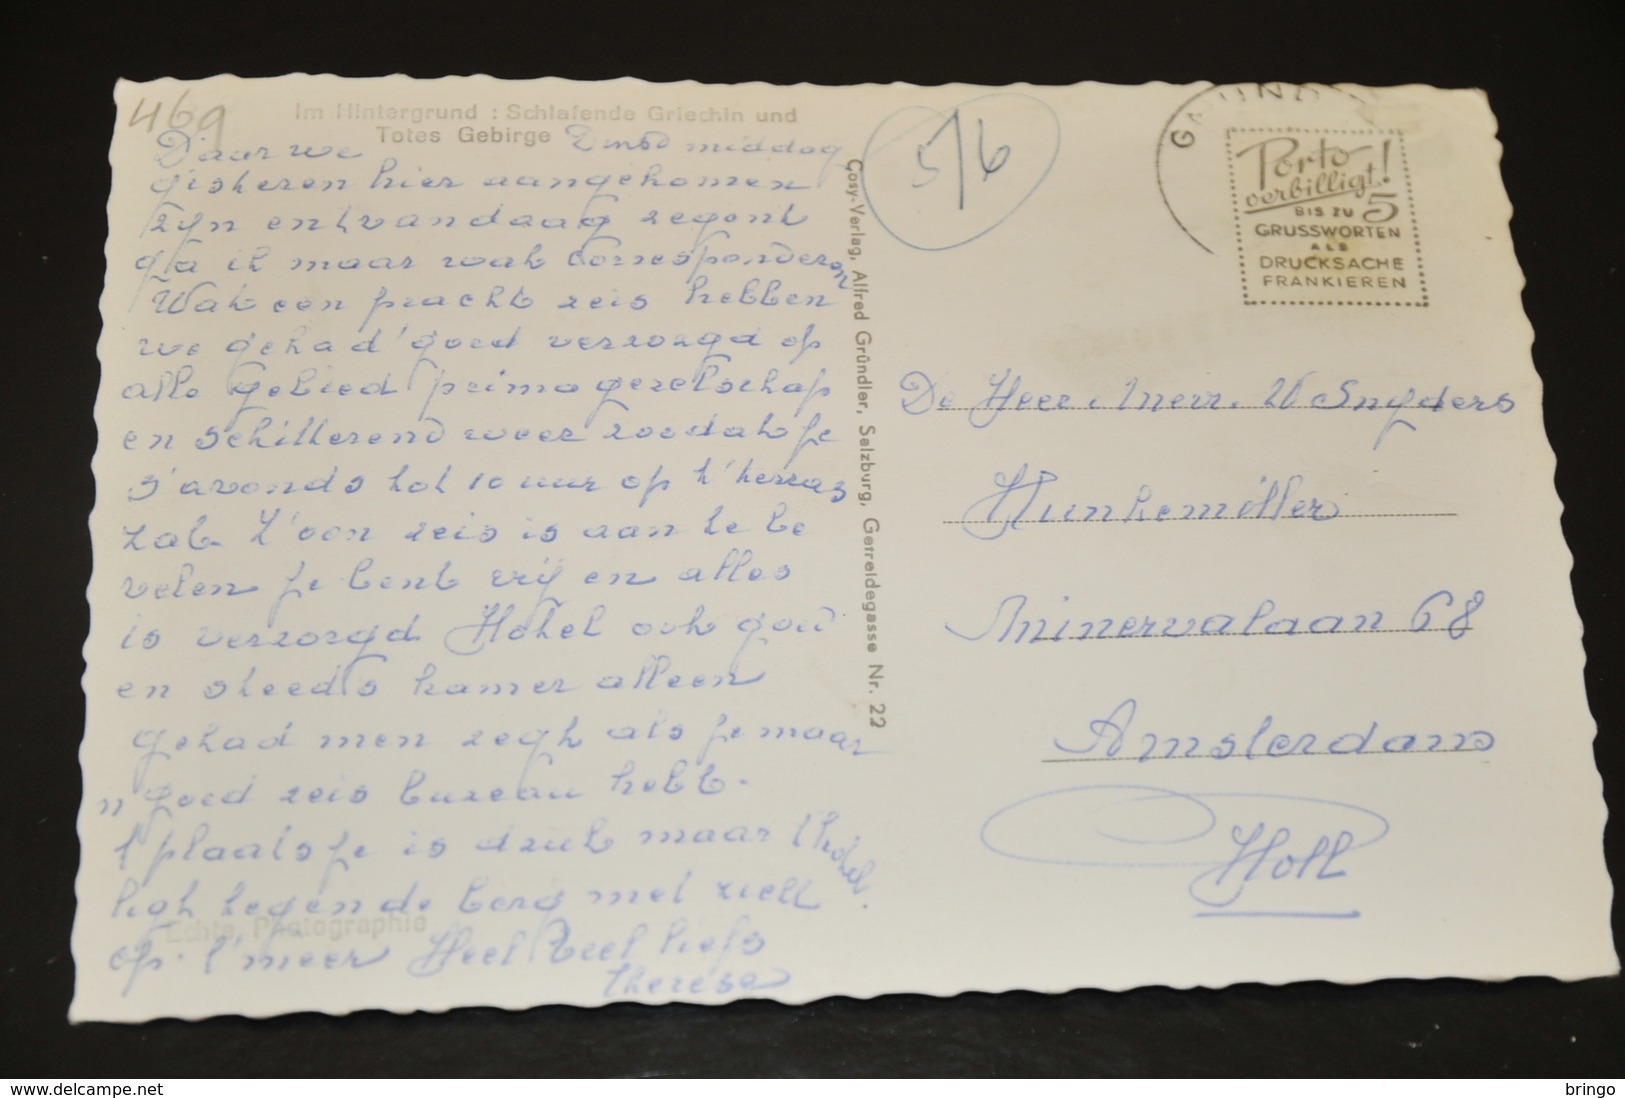 469
Im Hintergrund : Schlafende Griechin und
Totes Gebirge
Daar we Dinsd middag
gisteren hier aangekomen
zijn en 't vandaag regent
ga ik maar wat Corresponderen
Wat een pracht reis hebben
we gehad' goed verzorgd op
alle gebied prima gezelschap
en schitterend weer zoodat je
s'avonds tot 10 uur op 't terras
zat. Z'oon reis is aan te be
velen je bent vrij en alles
is verzorgd Hotel ook goed
en steeds kamer alleen
gehad men zegt als je maar
'n goed reis bureau hebt.
't plaatsje is druk maar 't hotel
ligt tegen de berg met
op 't meer Heel Veel liefs
Therese
Echte Photographie
Cosy-Verlag, Alfred Gründler, Salzburg, Getreidegasse Nr. 22
5/6
GMUNDEN
Porto
verbilligt!
BIS ZU 5
GRUSSWORTEN
ALS
DRUCKSACHE
FRANKIEREN
De Heer Mevr. W Snyders
Hunkemiller
Minervalaan 68
Amsterdam
Holl
www.delcampe.net
bringo